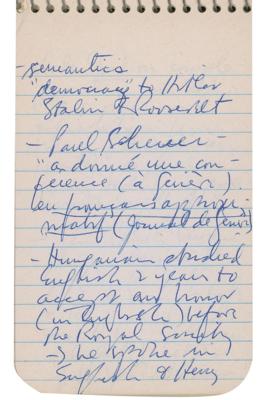 - semantics
"democracy" to Hitler
Stalin & Roosevelt
- Paul Scherrer -
"a donné une con-
férence (à Genève)
en français approxi-
matif (Journal de Genève)
- Hungarian studied
English 2 years to
accept an honor
(in English) before
the Royal Society
→ he spoke in
English & Henry